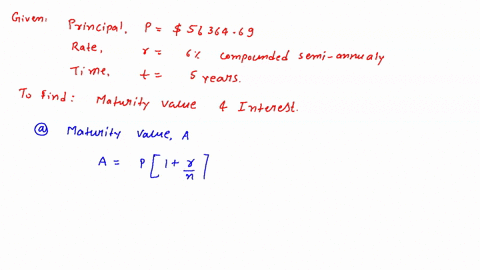 Given:
Principal, P = $56364.69
Rate, r = 6% compounded semi-annualy
Time, t = 5 years.
To find: Maturity value & Interest.
(a) Maturity value, A
A = P[1 + r/n]